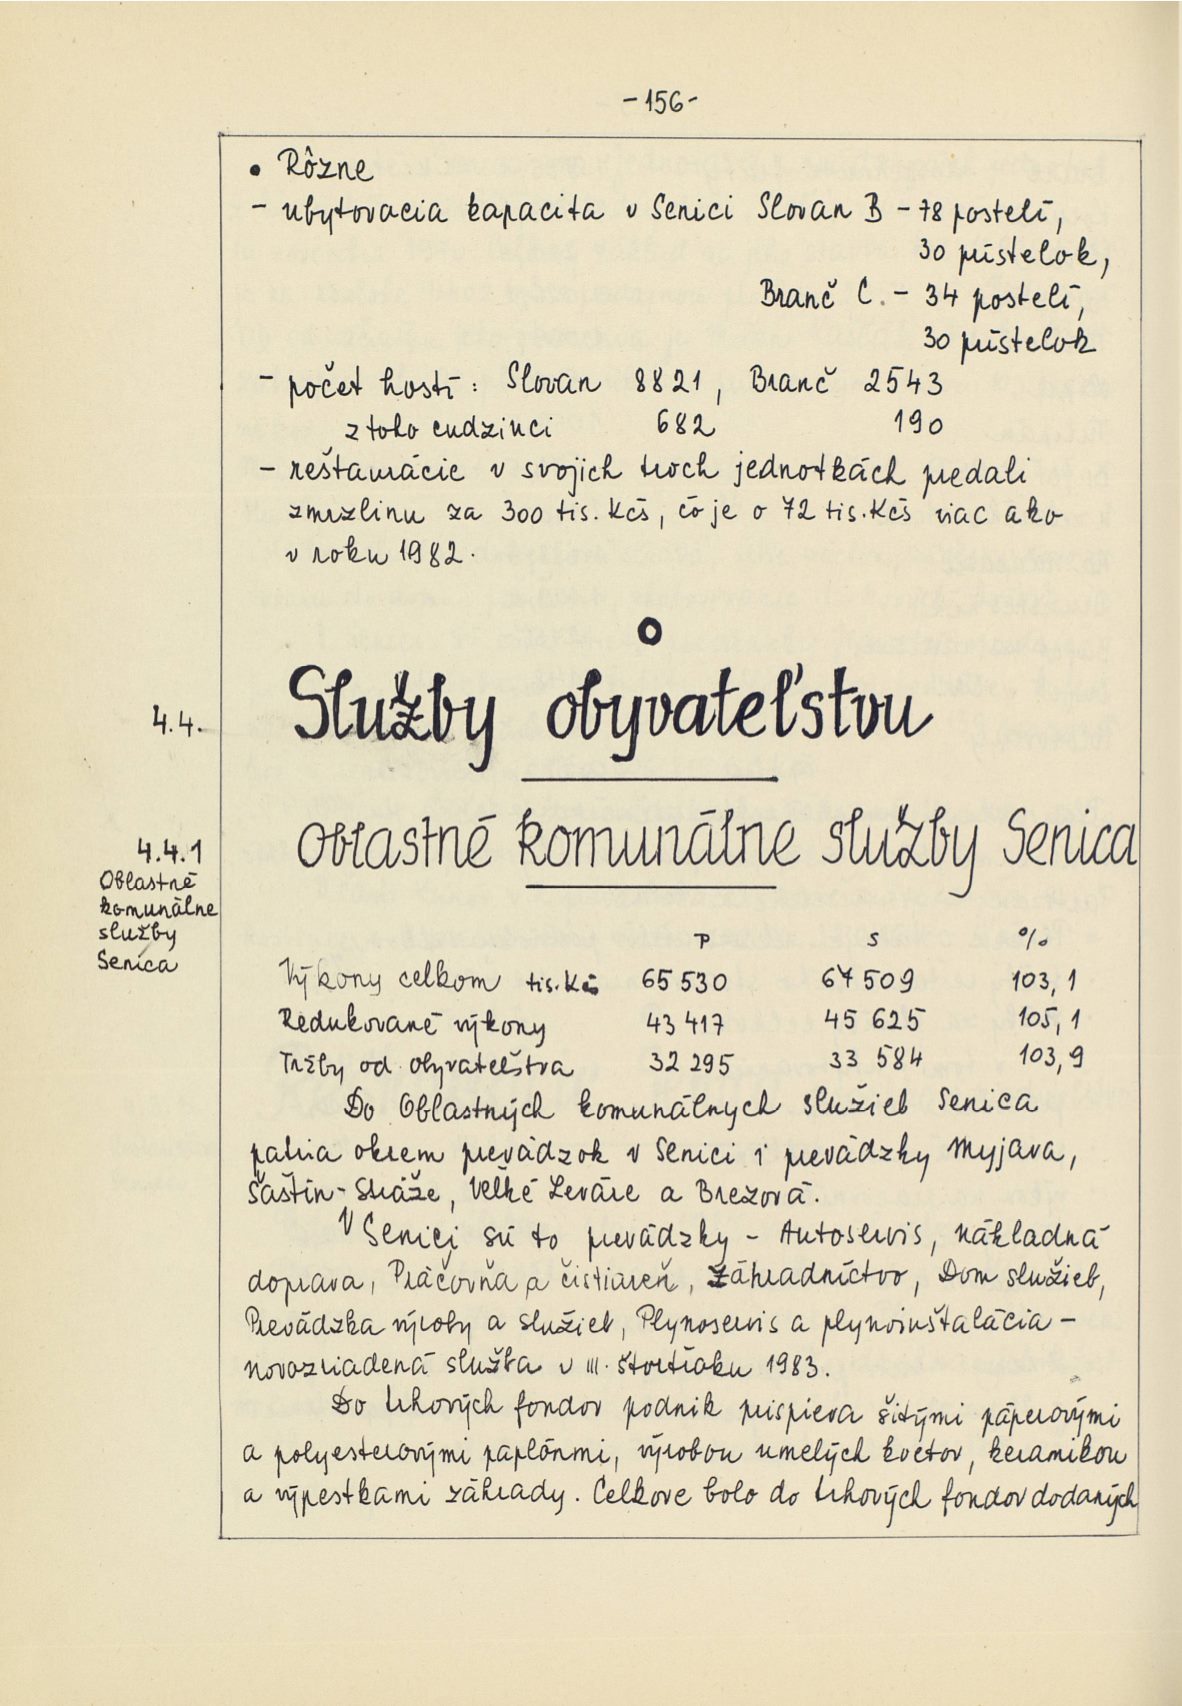 -156-
• Rôzne
- ubytovacia kapacita v Senici Slovan B - 78 postelí,
30 prístelok,
Branč C. - 34 postelí,
30 prístelok
- počet hostí: Slovan 8821, Branč 2543
z toho cudzinci 682 190
- reštaurácie v svojich troch jednotkách predali
zmrzlinu za 300 tis. Kčs, čo je o 72 tis. Kčs viac ako
v roku 1982.
o
4.4. Služby obyvateľstvu
4.4.1 Oblastné komunálne služby Senica
Oblastné
komunálne
služby
Senica
P S %
Výkony celkom tis. Kčs 65 530 67 509 103,1
Redukované výkony 43 417 45 625 105,1
Tržby od obyvateľstva 32 295 33 584 103,9
Do Oblastných komunálnych služieb Senica
patria okrem prevádzok v Senici i prevádzky Myjava,
Šaštín-Stráže, Veľké Leváre a Brezová.
V Senici sú to prevádzky - Autoservis, nákladná
doprava, Práčovňa a čistiareň, Záhradníctvo, Dom služieb,
Prevádzka výroby a služieb, Plynoservis a plynoinštalácia -
novozriadená služba v III. štvrťroku 1983.
Do trhových fondov podnik prispieva šitými páperovými
a polyesterovými paplónmi, výrobou umelých kvetov, keramikou
a výpestkami záhrady. Celkove bolo do trhových fondov dodaných